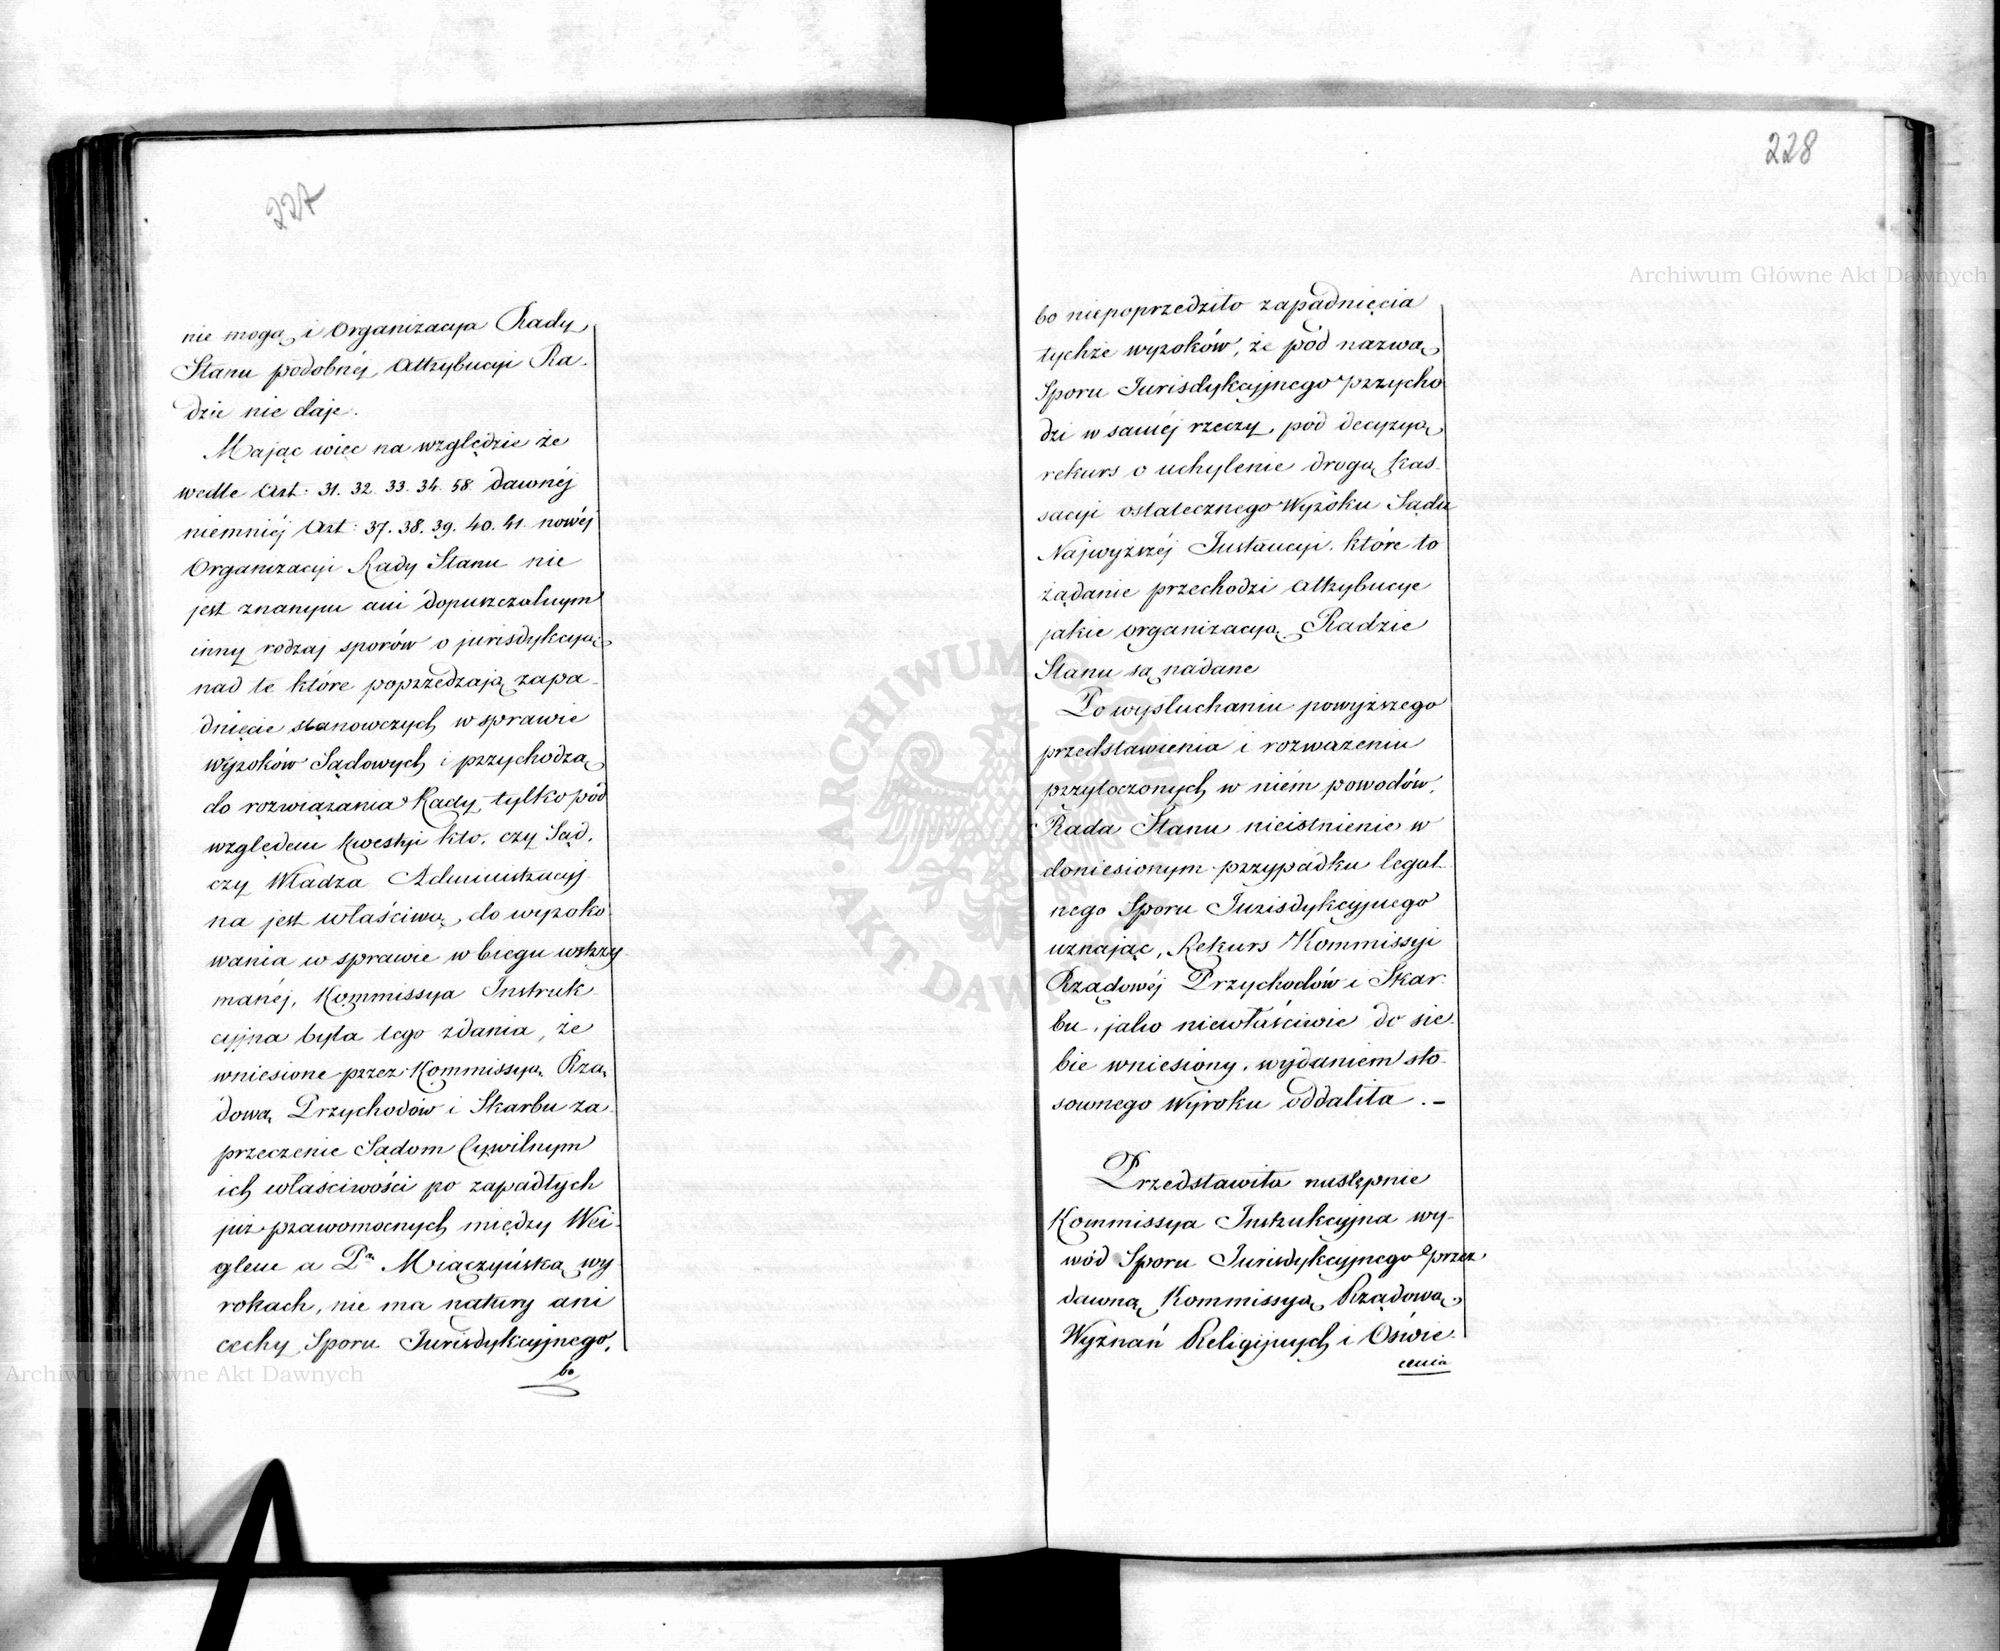 227
nie mogą i Organizacya Rady
Stanu podobnéj Attrybucyi Ra-
dzie nie daje.
Mając więc na względzie że
wedle Art: 31. 32. 33. 34. 58. dawnéj
niemniéj Art: 37. 38. 39. 40. 41. nowéj
Organizacyi Rady Stanu nie
jest znanym ani dopuszczalnym
inny rodzaj sporów o jurisdykcyą
nad te które poprzedzają zapa-
dnięcie stanowczych w sprawie
wyroków Sądowych i przychodzą
do rozwiązania Rady tylko pod
względem kwestyi kto, czy Sąd,
czy Władza Administracyj-
na jest właściwą do wyroko-
wania w sprawie w biegu wstrzy-
manéj, Kommissya Instruk-
cyjna była tego zdania, że
wniesione przez Kommissyą Rzą-
dową Przychodów i Skarbu za-
przeczenie Sądom Cywilnym
ich właściwości po zapadłych
już prawomocnych między Wei-
glem a Pą Miączyńską wy-
rokach, nie ma natury ani
cechy Sporu Jurisdykcyjnego,
bo
228
bo niepoprzedziło zapadnięcia
tychże wyroków, że pod nazwą
Sporu Jurisdykcyjnego przycho
dzi w saméj rzeczy, pod decyzyą
rekurs o uchylenie drogą kas-
sacyi ostatecznego Wyroku Sądu
Najwyższéj Instancyi, które to
żądanie przechodzi Attrybucye
jakie organizacyą Radzie
Stanu są nadane
Po wysłuchaniu powyższego
przedstawienia i rozważeniu
przytoczonych w niém powodów,
Rada Stanu nieistnienie w
doniesionym przypadku legal-
nego Sporu Jurisdykcyjnego
uznając, Rekurs Kommissyi
Rządowéj Przychodów i Skar-
bu, jako niewłaściwie do sie-
bie wniesiony, wydaniem sto-
sownego Wyroku oddaliła. –
Przedstawiła następnie
Kommissya Instrukcyjna wy-
wód Sporu Jurisdykcyjnego przez
dawną Kommissyą Rządową
Wyznań Religijnych i Oświe-
cenia
Archiwum Główne Akt Dawnych
Archiwum Główne Akt Dawnych